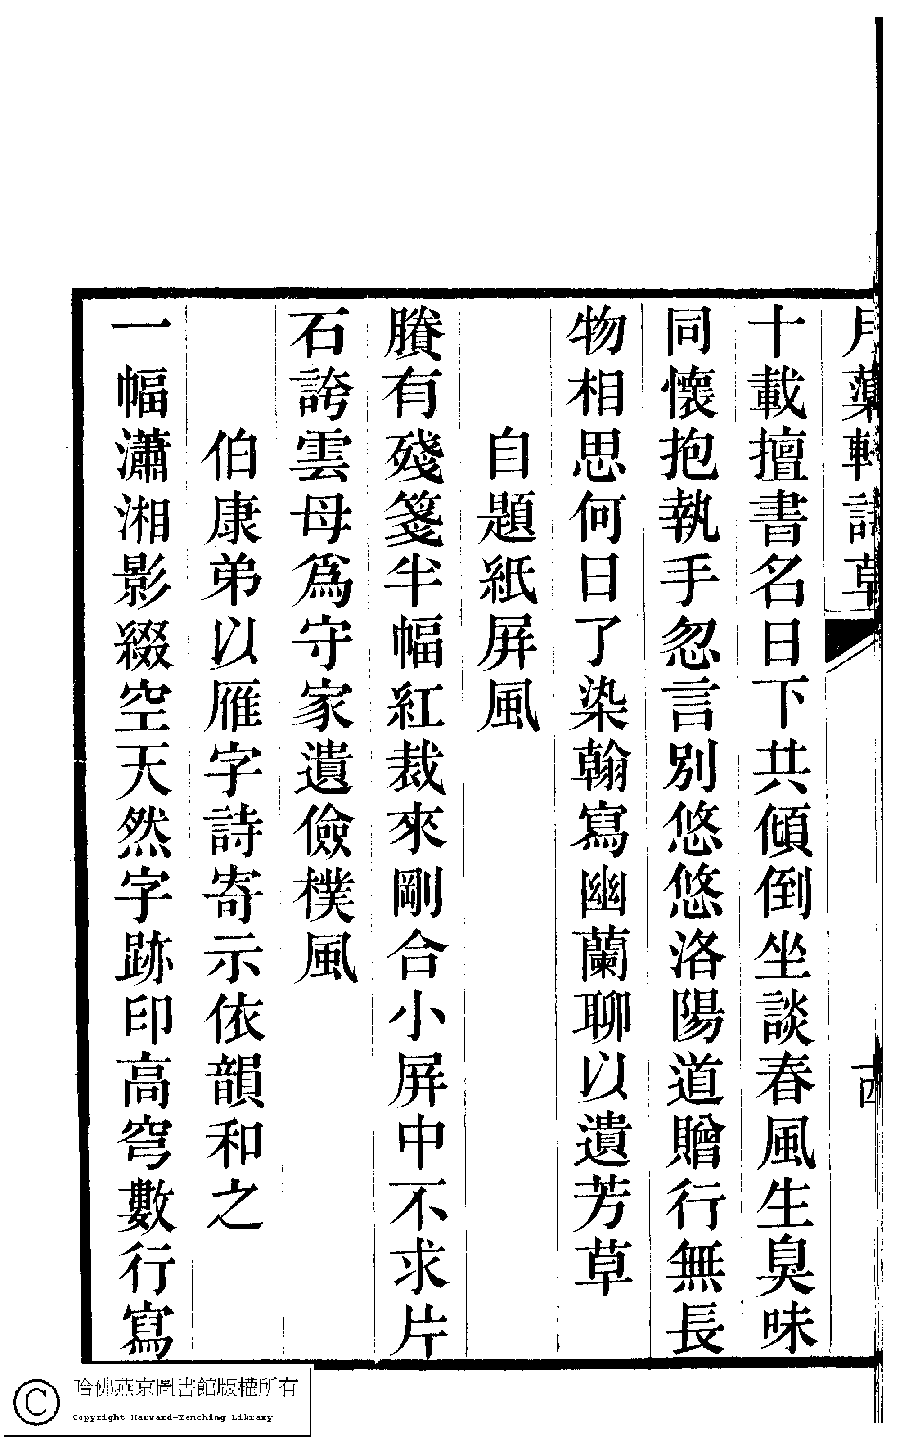 月蕖軒詩草
十載擅書名日下共傾倒坐談春風生臭味
同懷抱執手忽言別悠悠洛陽道贈行無長
物相思何日了染翰寫幽蘭聊以遺芳草
自題紙屏風
賸有殘箋半幅紅裁來剛合小屏中不求片
石誇雲母爲守家遺儉樸風
伯康弟以雁字詩寄示依韻和之
一幅瀟湘影綴空天然字跡印高穹數行寫
哈佛燕京圖書館版權所有
Copyright Harvard-Yenching Library